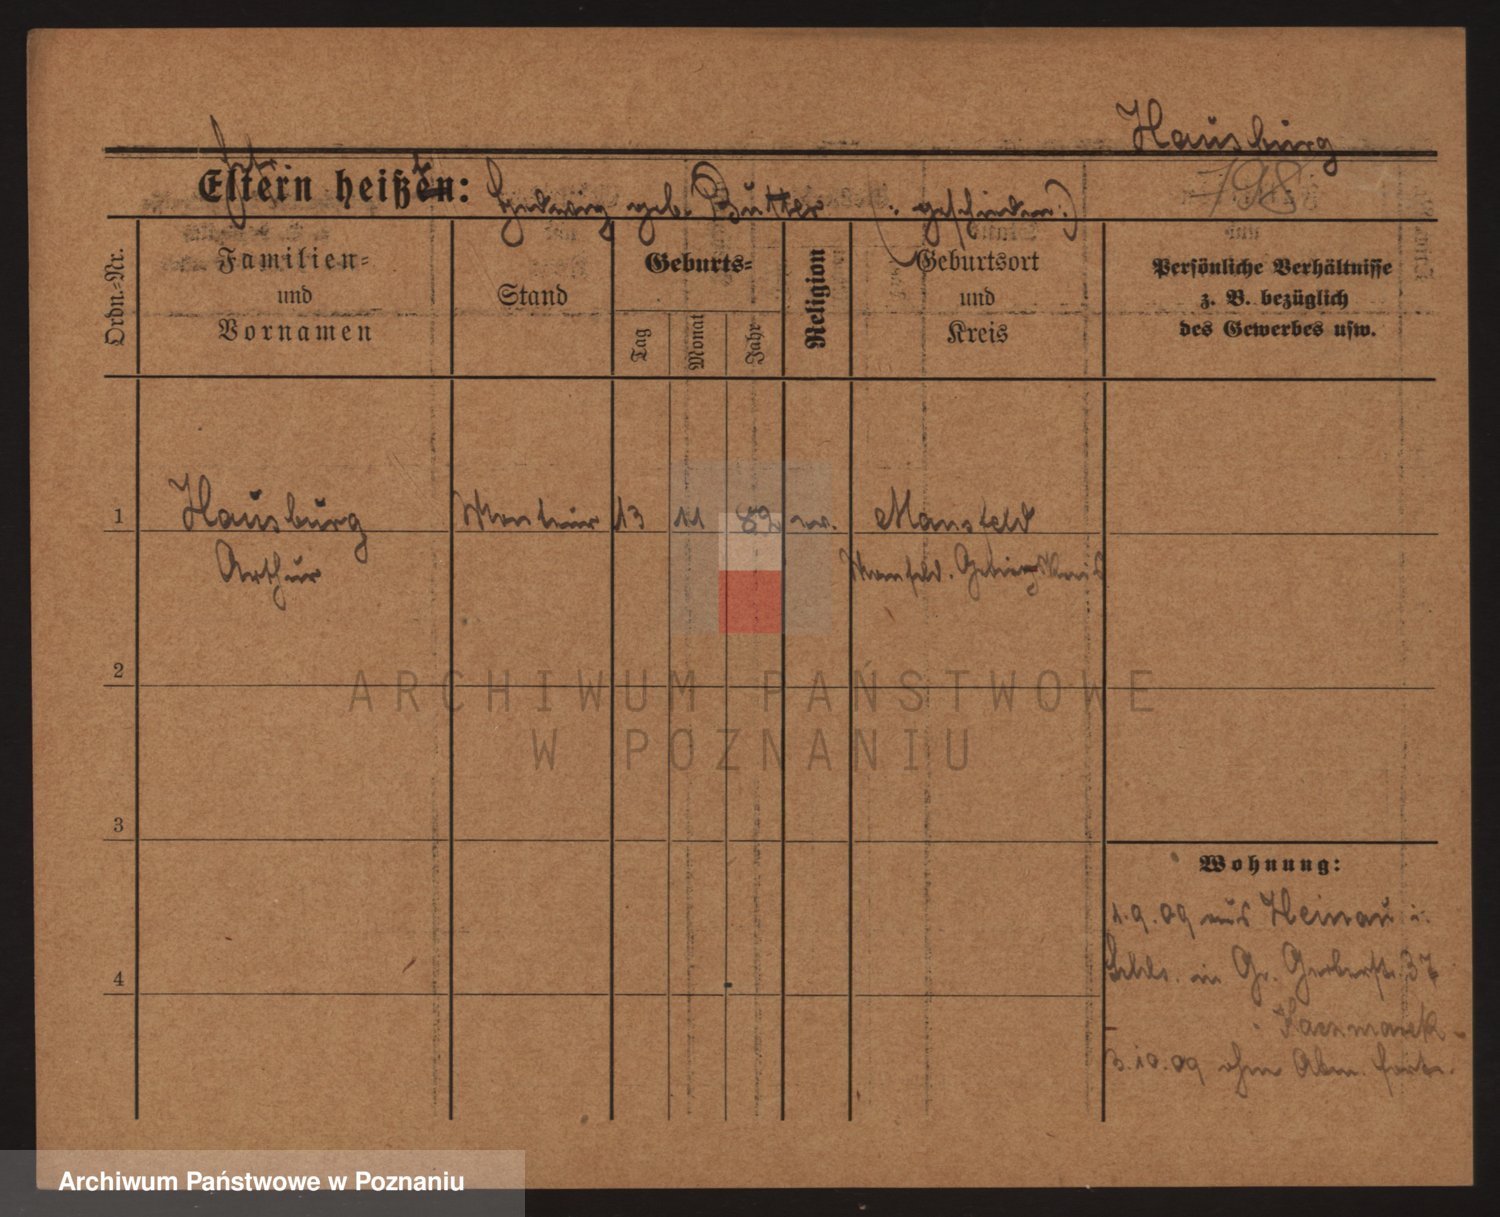 Hausburg
798
Eltern heißen: Hedwig geb. Butter (: geschieden :)
Ordn.-Nr.
Familien-
und
Vornamen
Stand
Geburts-
Tag
Monat
Jahr
Religion
Geburtsort
und
Kreis
Persönliche Verhältnisse
z. B. bezüglich
des Gewerbes usw.
1
Hausburg
Arthur
Monteur
13
11
82
ev.
Mansfeld
Mansfeld. Gebirgskreis
2
ARCHIWUM PAŃSTWOWE
W POZNANIU
3
Wohnung:
1.9.09 aus Heinau i.
Schls. in Gr. Gerberstr. 37
Kaczmarek -
4
3.10.09 ohne Abm. forts.
Archiwum Państwowe w Poznaniu